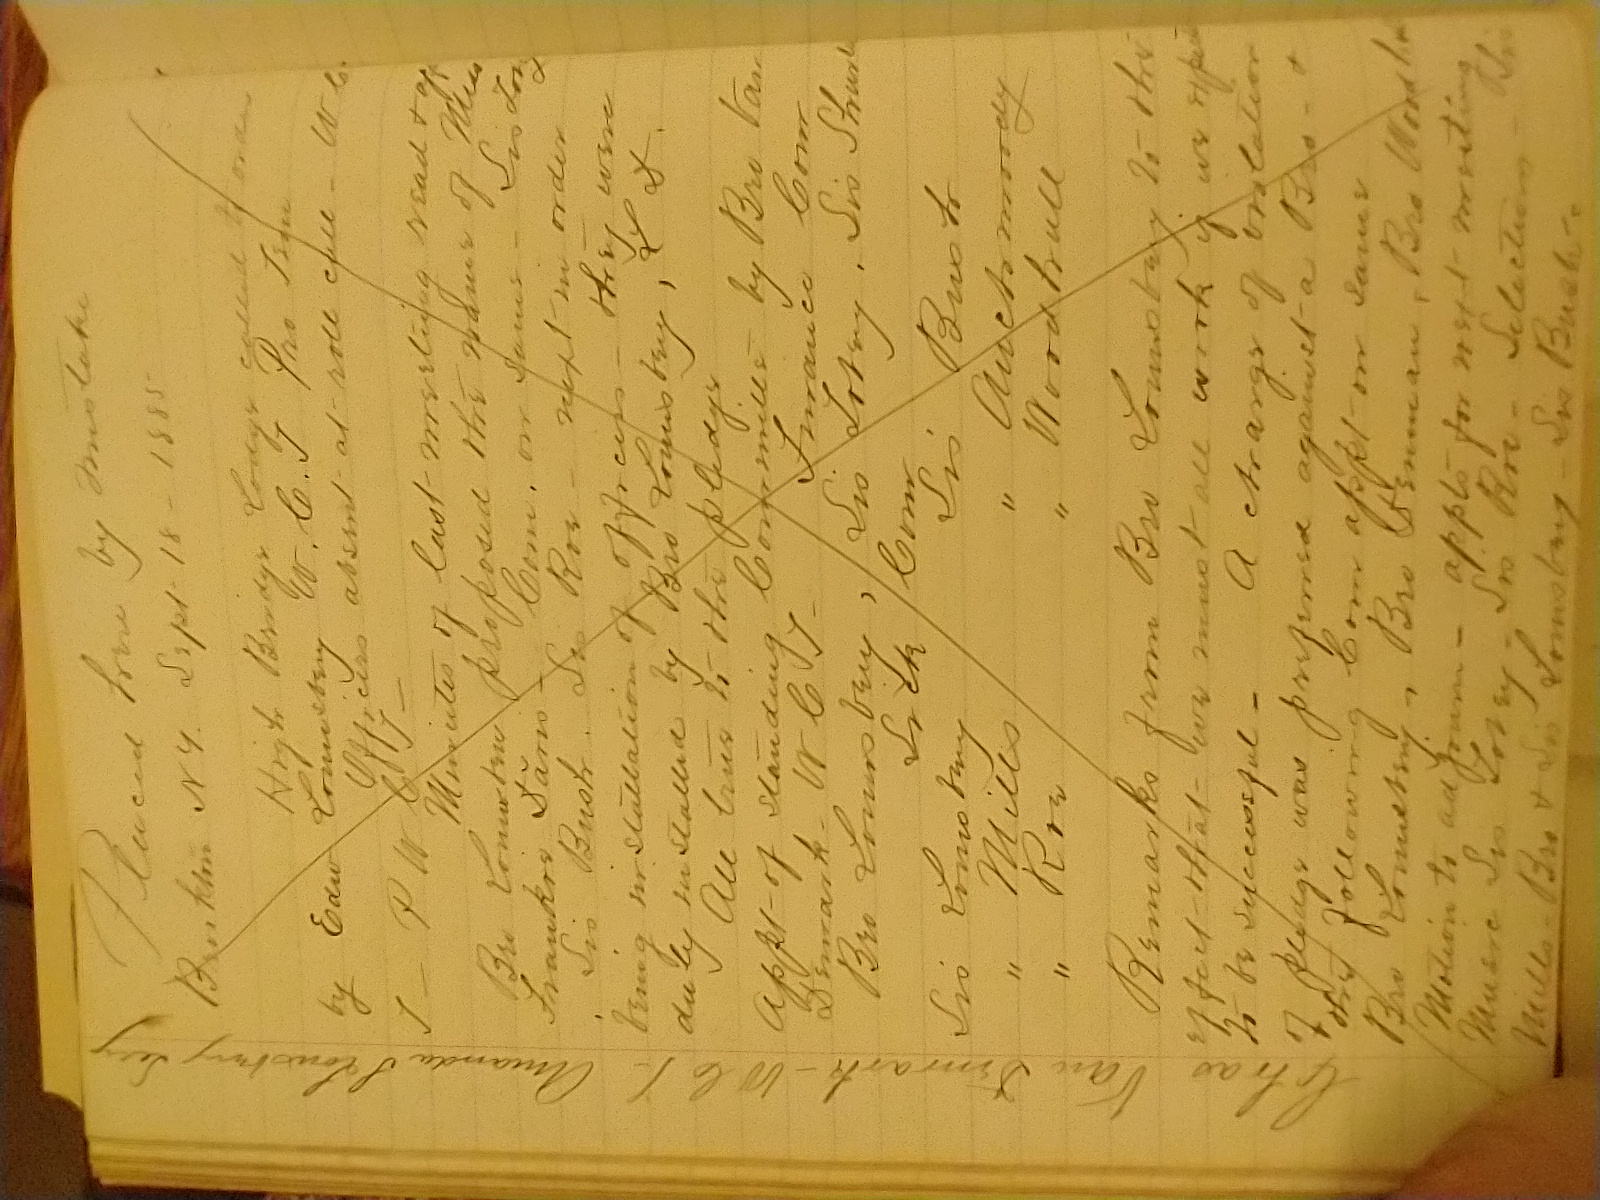 Placed here by mistake
Brookton N Y. Sept 18 - 1885
High Bridge Lodge called to order
by Edw Lounsbery W. C. T Pro Tem
Officers absent at roll call - W C.
T - P W C T -
Minutes of last meeting read & ap
Bro Lounsbery proposed the name of Miss
Frankie Davis - Com. on same - Sis Tobey
. Sis Bush . Sis Roe - next in order
being installation of officers - they were
duly installed by Bro Lounsbery, L D.
All true to the pledge
Appt of standing Committe by Bro Van
Demark - W C T - Finance Com
Bro Lounsbery, Sis Tobey. Sis
Sick Com
Sis Lounsbery Sis Bush
" Mills " Auchmoody
" Roe " Woodhull
Remarks from Bro Lounsbery to the
effect that we must all work if we expect
to be successful - A charge of violation
of pledge was preferred against a Bro - &
the following Com appt on same
Bro Lounsbery, Bro Denman, Bro Woodhu
Motion to adjourn - appts for next meeting
Music Sis Tobey - Sis Roe - Selections - Sis
Mills - Bro & Sis Lounsbery - Sis Bush -
Chas Van Demark - W C T - Amanda S Lounsbery Secy